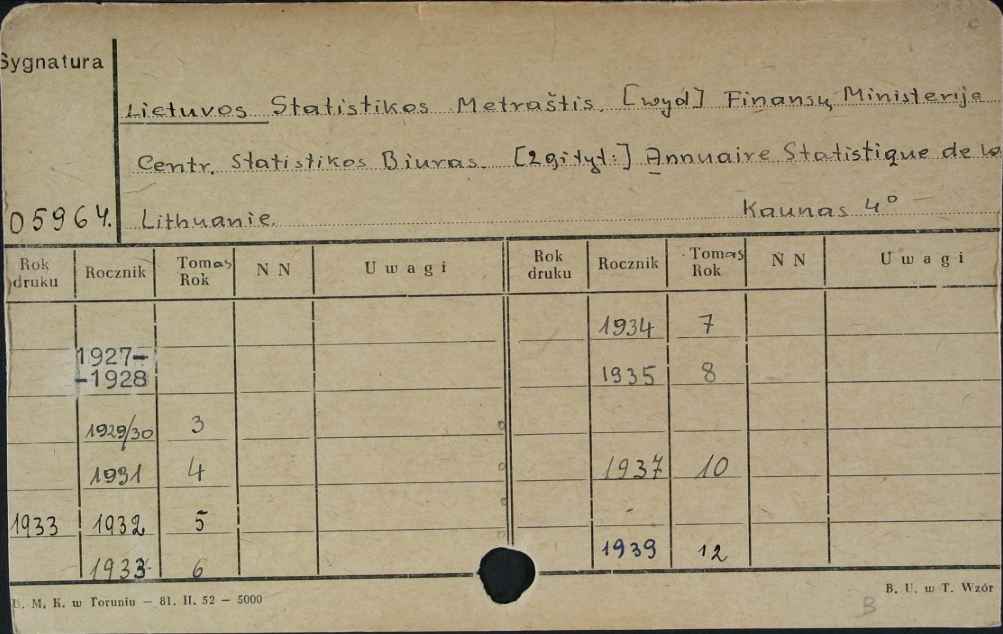 Sygnatura
Lietuvos Statistikos Metraštis. [wyd] Finansų Ministerija
Centr. Statistikos Biuras. [2gi tyt:] Annuaire Statistique de la
05964. Lithuanie. Kaunas 4°
Rok druku Rocznik Tomas Rok N N Uwagi Rok druku Rocznik Tomas Rok N N Uwagi
1934 7
1927-
-1928
1935 8
1929/30 3
1931 4 1937 10
1933 1932 5 -
1933 6 1939 12
U. M. K. w Toruniu — 81. II. 52 — 5000
B. U. w T. Wzór
B